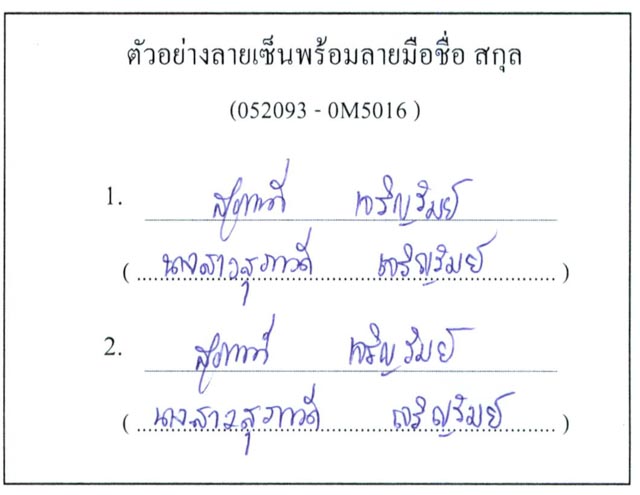 ตัวอย่างลายเซ็นพร้อมลายมือชื่อ สกุล
(052093 - 0M5016 )
1. สุภาวดี เจริญรัมย์
( นางสาวสุภาวดี เจริญรัมย์ )
2. สุภาวดี เจริญรัมย์
( นางสาวสุภาวดี เจริญรัมย์ )